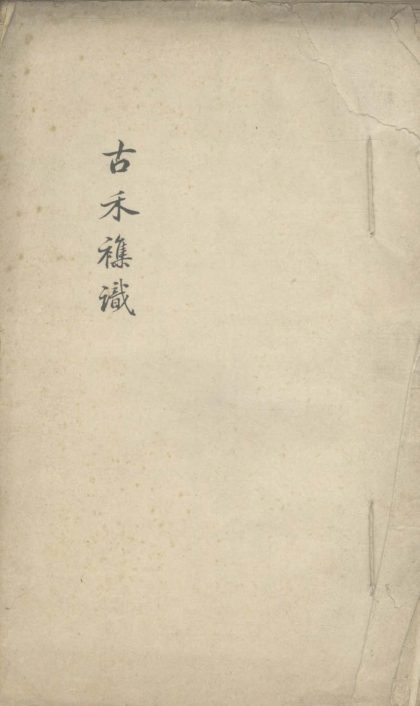 古禾襍識